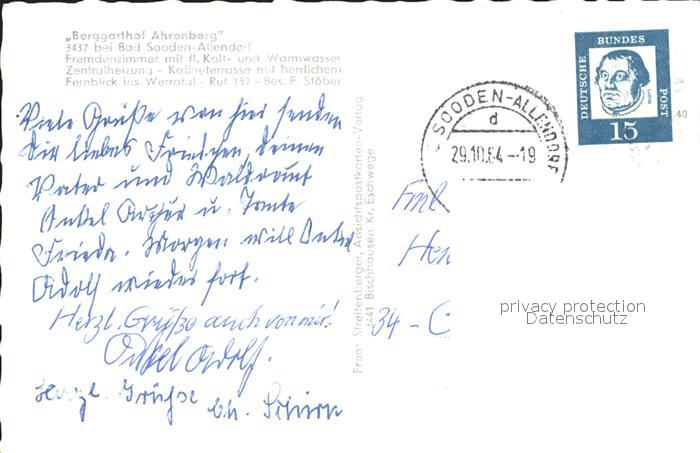 „Berggasthof Ahrenberg"
3437 bei Bad Sooden-Allendorf
Fremdenzimmer mit fl. Kalt- und Warmwasser
Zentralheizung - Kaffeeterrasse mit herrlichem
Fernblick ins Werratal - Ruf 139 - Bes. F. Stöber
Viele Grüße von hier senden
Dir liebes Friedchen, deinem
Vater und Waldraut
Onkel Arthur u. Tante
Frieda. Morgen will Onkel
Adolf wieder fort.
Herzl. Grüße auch von mir!
Onkel Adolf.
Herzl. Grüße
Franz Streitenberger, Ansichtspostkarten-Verlag
3441 Bischhausen Kr. Eschwege
SOODEN-ALLENDORF
d
29.10.64-19
DEUTSCHE BUNDESPOST
Luther
15
40
Frl
Her
34 - C
privacy protection
Datenschutz